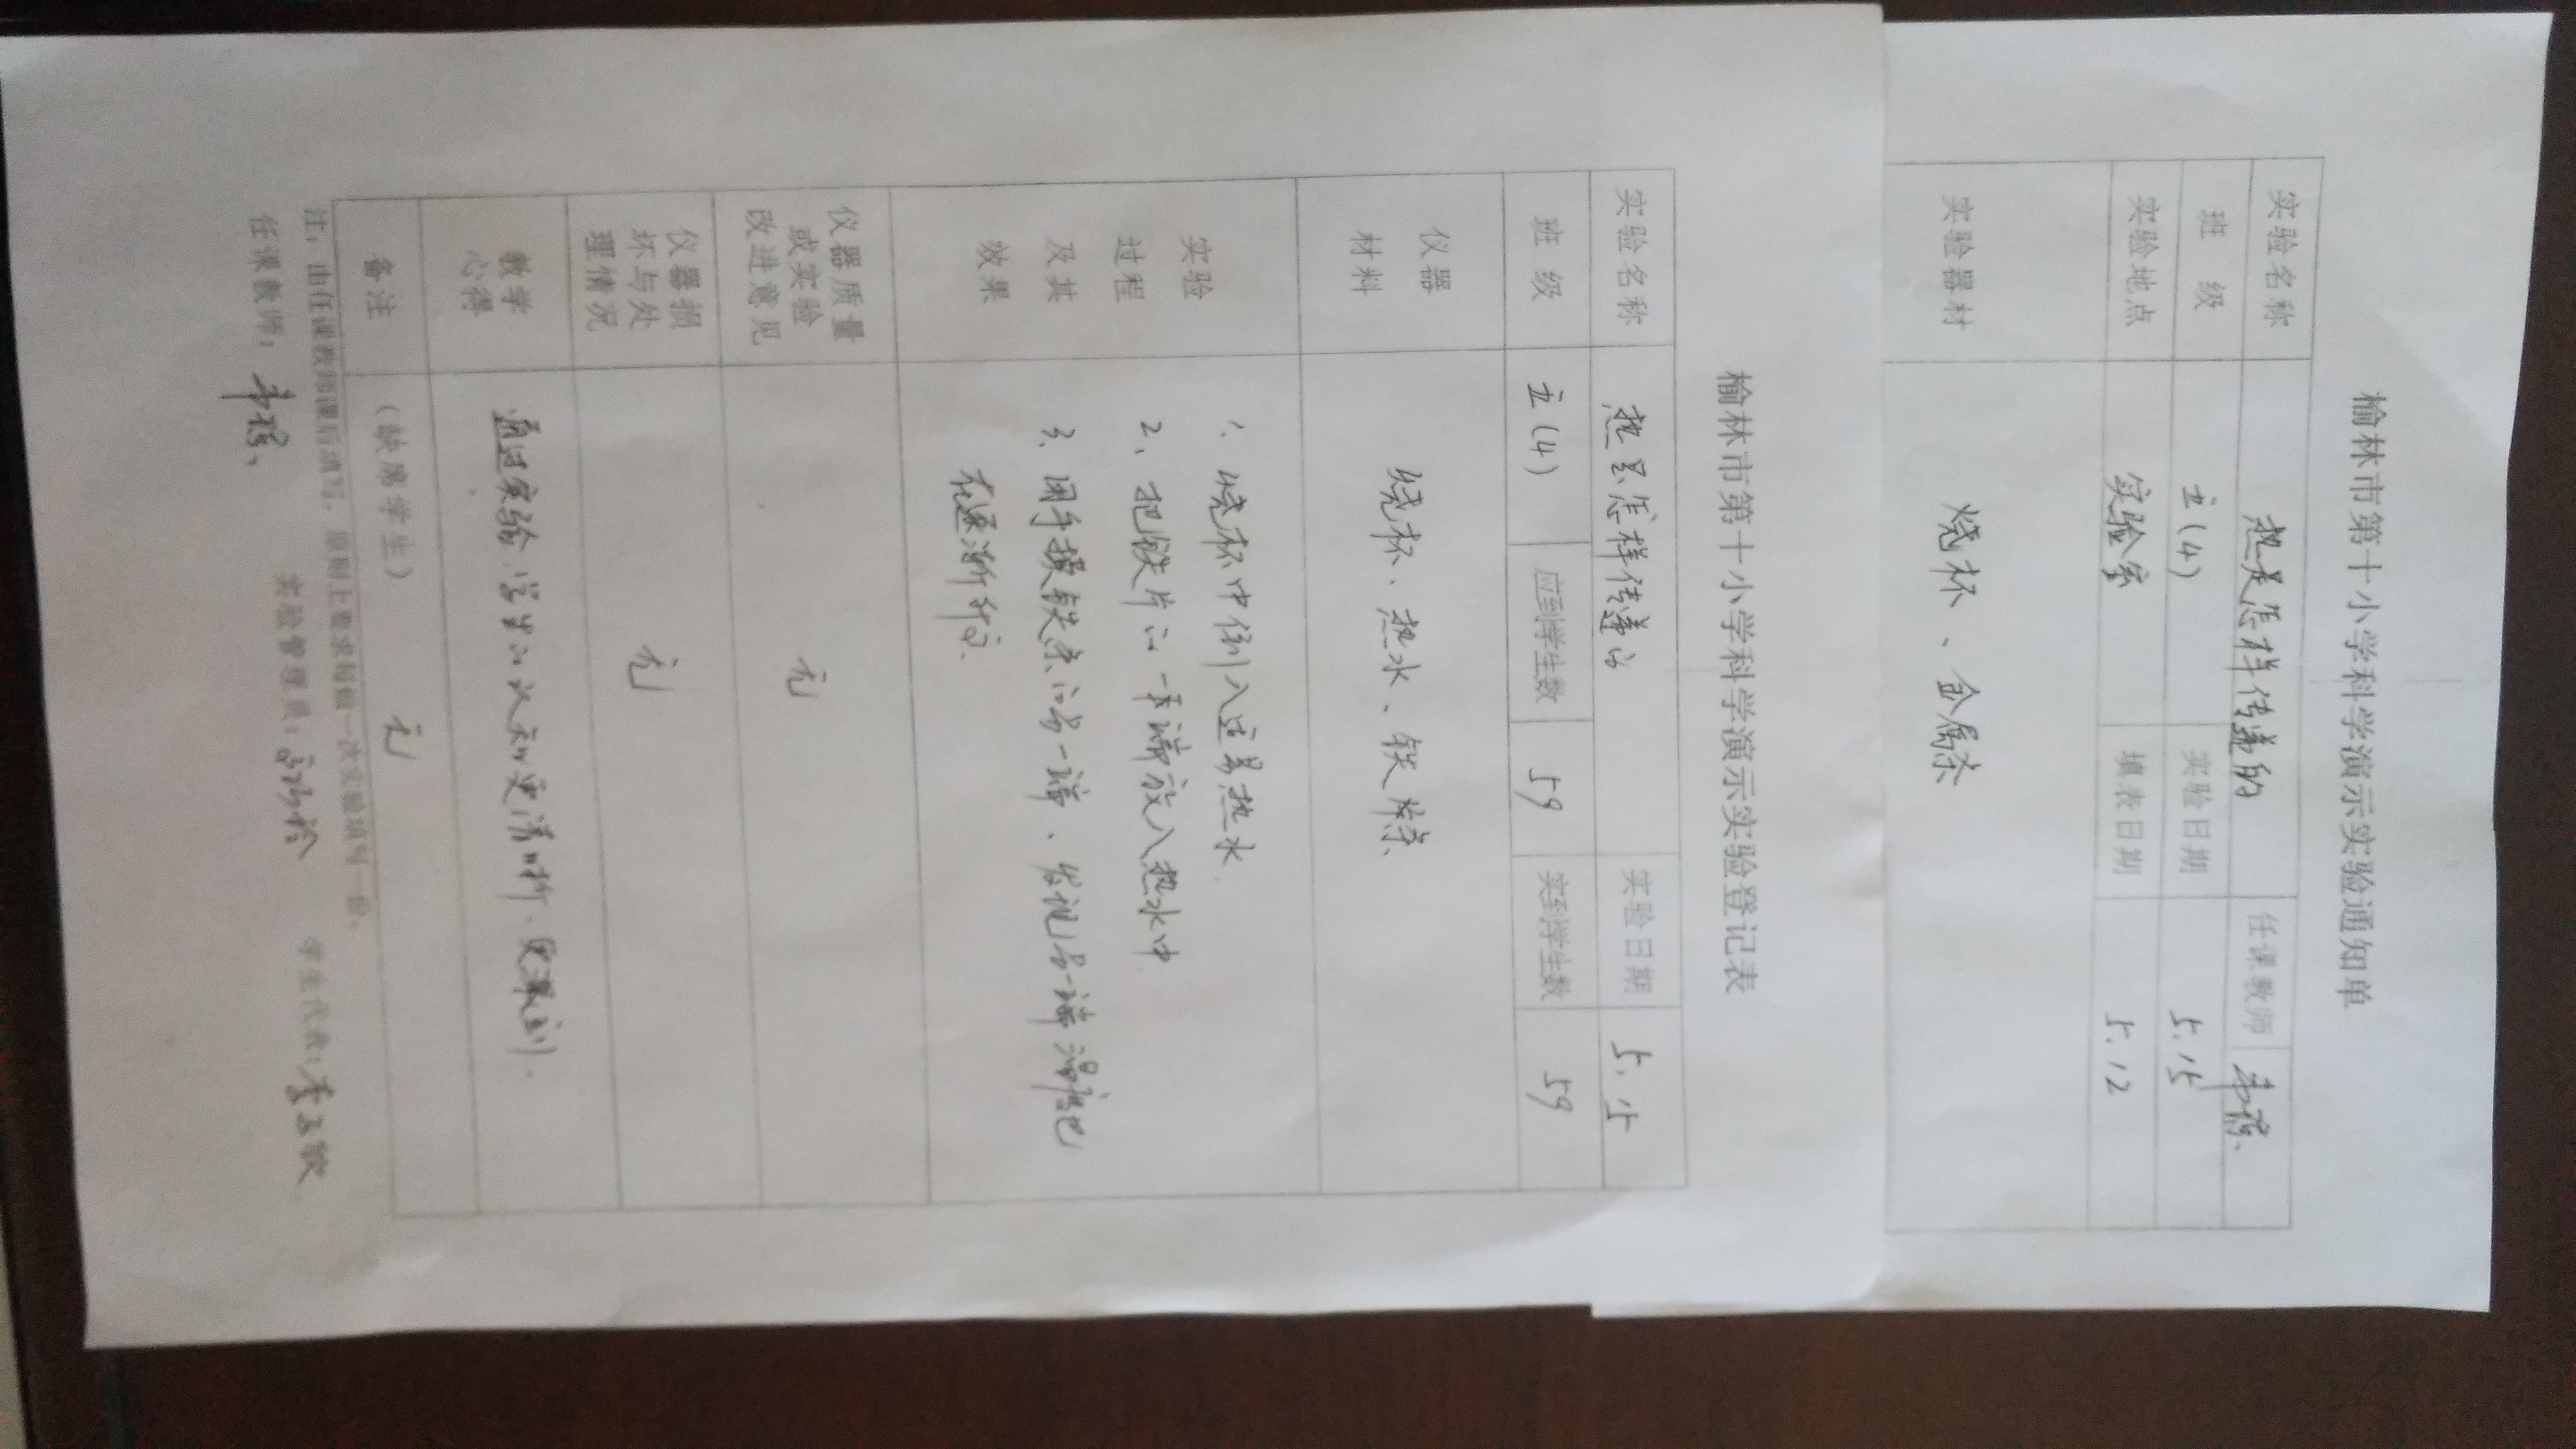 榆林市第十小学科学演示实验通知单
实验名称 热是怎样传递的 任课教师
班 级 五(4) 实验日期 5.15
实验地点 实验室 填表日期 5.12
实验器材 烧杯、金属条
榆林市第十小学科学演示实验登记表
实验名称 热是怎样传递的 实验日期 5.15
班 级 五(4) 应到学生数 59 实到学生数 59
仪器
材料
烧杯、热水、铁条
实验
过程
及其
效果
1、烧杯中倒入适量热水.
2、把铁片的一端放入热水中
3、用手摸铁条的另一端、发现另一端温度也
在逐渐升高.
仪器质量
或实验
改进意见
无
仪器损
坏与处
理情况
无
教学
心得
通过实验,学生的认知更清晰、更深刻.
备注 (缺席学生) 无
注:由任课教师课后填写,原则上要求每做一次实验填写一份。
任课教师: 实验管理员: 学生代表: